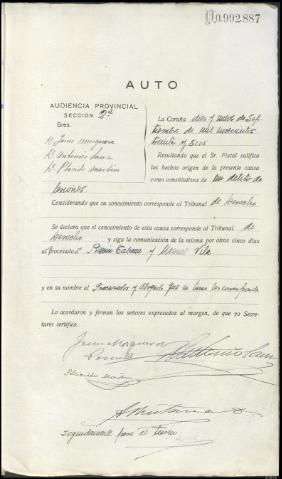 0.992.887
AUTO
AUDIENCIA PROVINCIAL
SECCION 2ª
Sres.
D. Jaime
D. Antonio Sanz
D. Placido Martin
La Coruña diez y nueve de Sep-
tiembre de mil novecientos
treinta y seis
Resultando que el Sr. Fiscal califica
los hechos origen de la presente causa
como constitutivos de un delito de
lesiones
Considerando que su conocimiento corresponde al Tribunal de Derecho
Se declara que el conocimiento de esta causa corresponde al Tribunal de
Derecho y siga la comunicación de la misma por otros cinco días
al procesado s y Manuel Vila
y en su nombre al Procurador y Abogado que
Lo acordaron y firman los señores expresados al margen, de que yo Secre-
tario certifico.
Antonio Sanz
Seguidamente pasa al turno